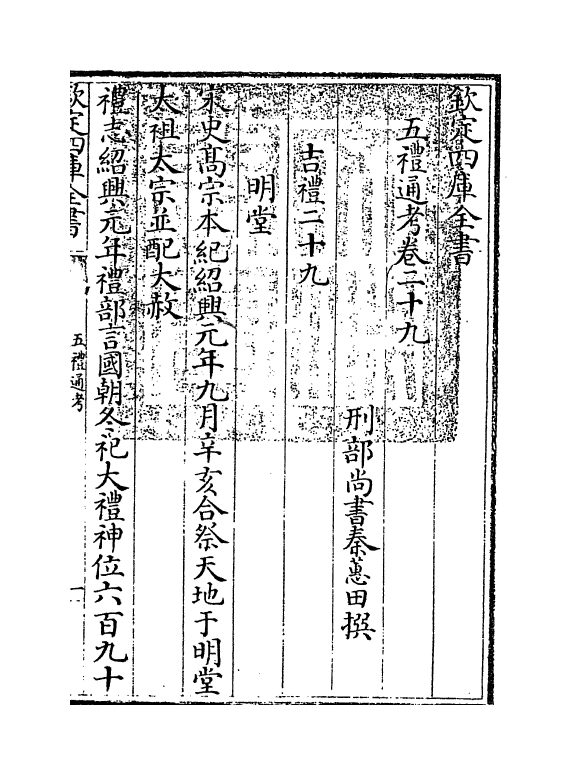 欽定四庫全書
五禮通考卷二十九
刑部尚書秦蕙田撰
吉禮二十九
明堂
宋史高宗本紀紹興元年九月辛亥合祭天地于明堂
太祖太宗並配大赦
禮志紹興元年禮部言國朝冬祀大禮神位六百九十
欽定四庫全書
五禮通考
一